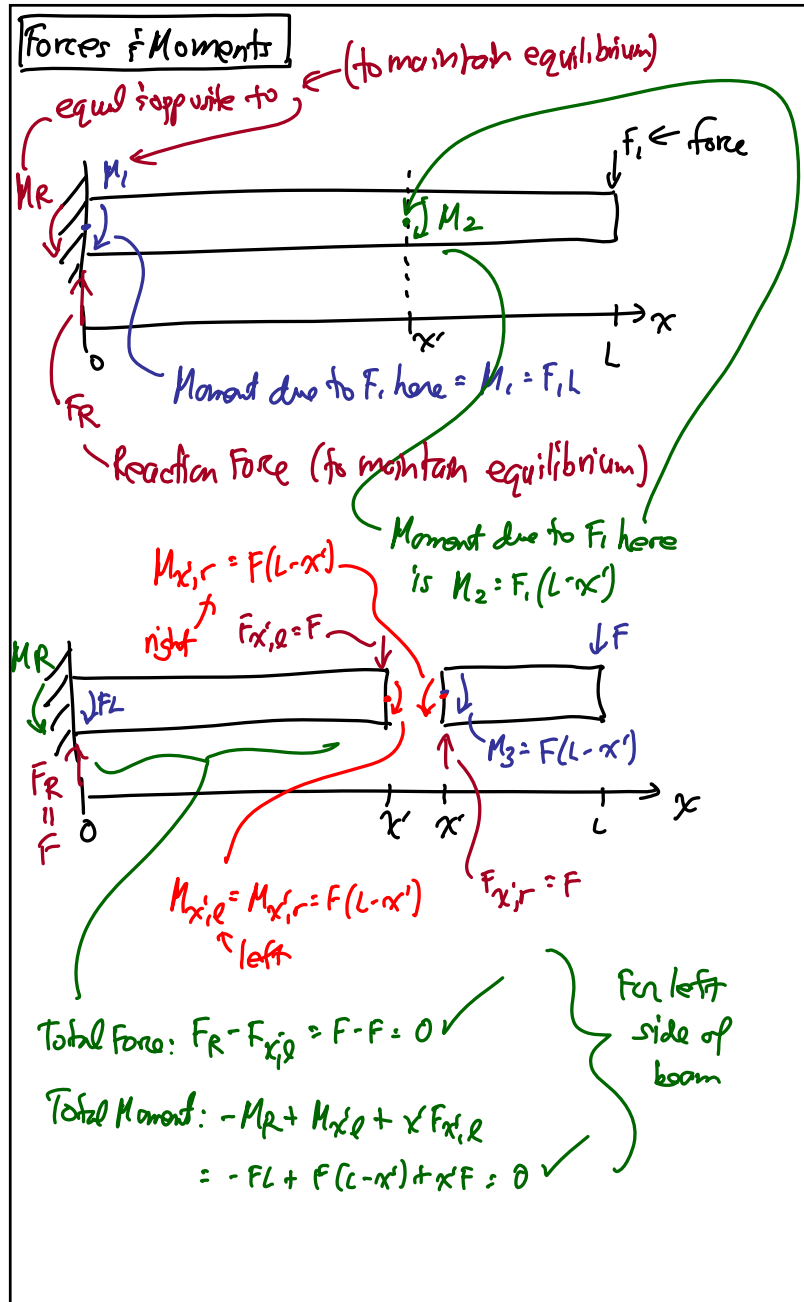 Forces & Moments
(to maintain equilibrium)
equal & opposite to
M₁
F₁ ← force
M_R
M₂
x
0
x'
L
Moment due to F₁ here = M₁ = F₁L
F_R
Reaction Force (to maintain equilibrium)
Moment due to F₁ here
is M₂ = F₁(L-x')
M_x',r = F(L-x')
right
F_x',l = F
F
M_R
FL
M₃ = F(L-x')
F_R
=
F
0
x'
x'
L
x
F_x',r = F
M_x',l = M_x',r = F(L-x')
left
For left
side of
beam
Total Force: F_R - F_x',l = F - F = 0 ✓
Total Moment: -M_R + M_x'l + x'F_x',l
= -FL + F(L-x') + x'F = 0 ✓